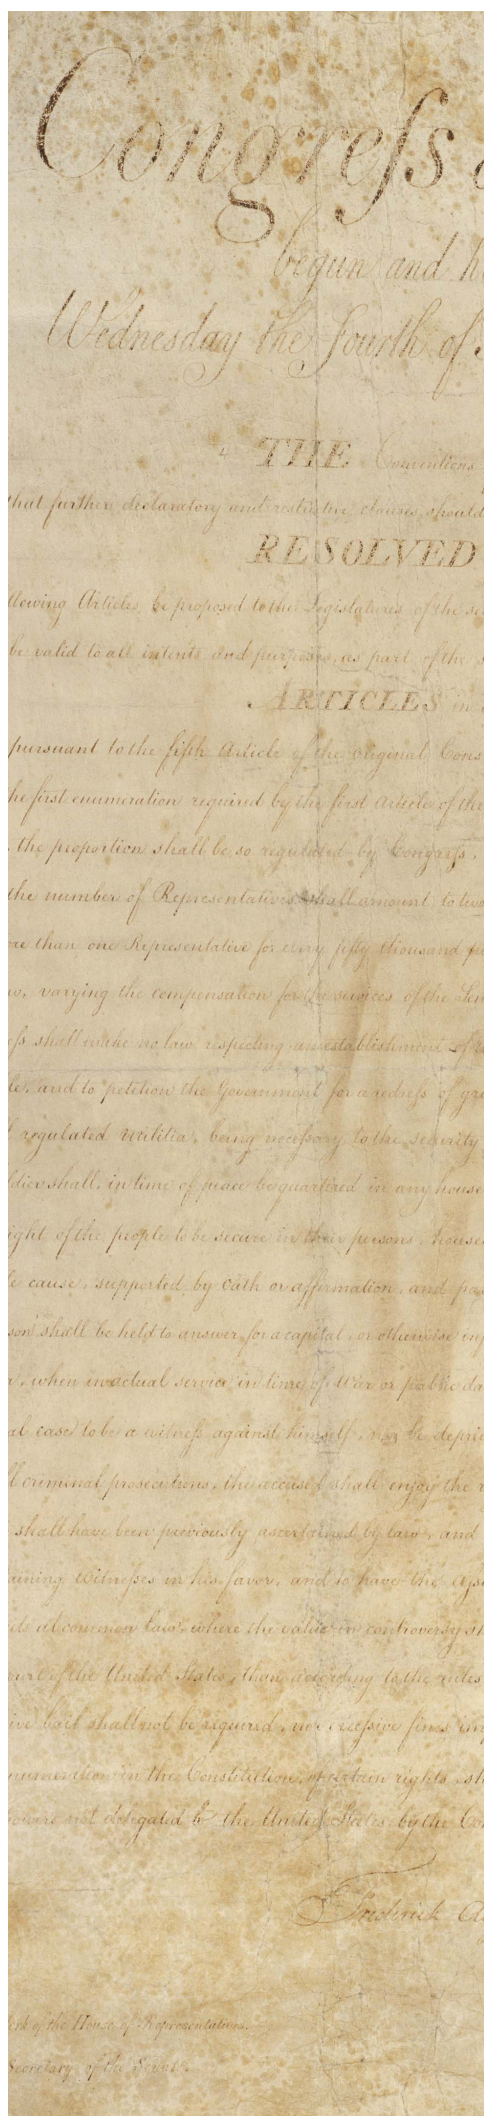 Congreſs
begun and h
Wednesday the fourth of
THE Conventions
that further declaratory and restrictive clauses should
RESOLVED
llowing Articles be proposed to the Legislatures of the se
be valid to all intents and purposes, as part of the s
ARTICLES in
pursuant to the fifth Article of the original Cons
he first enumeration required by the first Article of the
, the proportion shall be so regulated by Congreſs,
the number of Representatives shall amount to two
ore than one Representative for every fifty thousand pe
w, varying the compensation for the services of the Sen
eſs shall make no law respecting an establishment of re
le, and to petition the Government for a redreſs of gri
l regulated Militia, being neceſsary to the security
ldier shall, in time of peace be quartered in any house
ight of the people to be secure in their persons, houses
le cause, supported by Oath or affirmation, and pa
son shall be held to answer for a capital, or otherwise inf
a, when in actual service in time of War or public da
al case to be a witneſs against himself, nor be depri
ll criminal prosecutions, the accused shall enjoy the r
shall have been previously ascertained by law, and
aining witneſses in his favor, and to have the aſsi
its at common law, where the value in controversy sh
ourt of the United States, than according to the rules
ive bail shall not be required, nor exceſsive fines imp
numeration in the Constitution, of certain rights, sh
powers not delegated to the United States by the Con
Frederick A
lerk of the House of Representatives.
Secretary of the Senate.